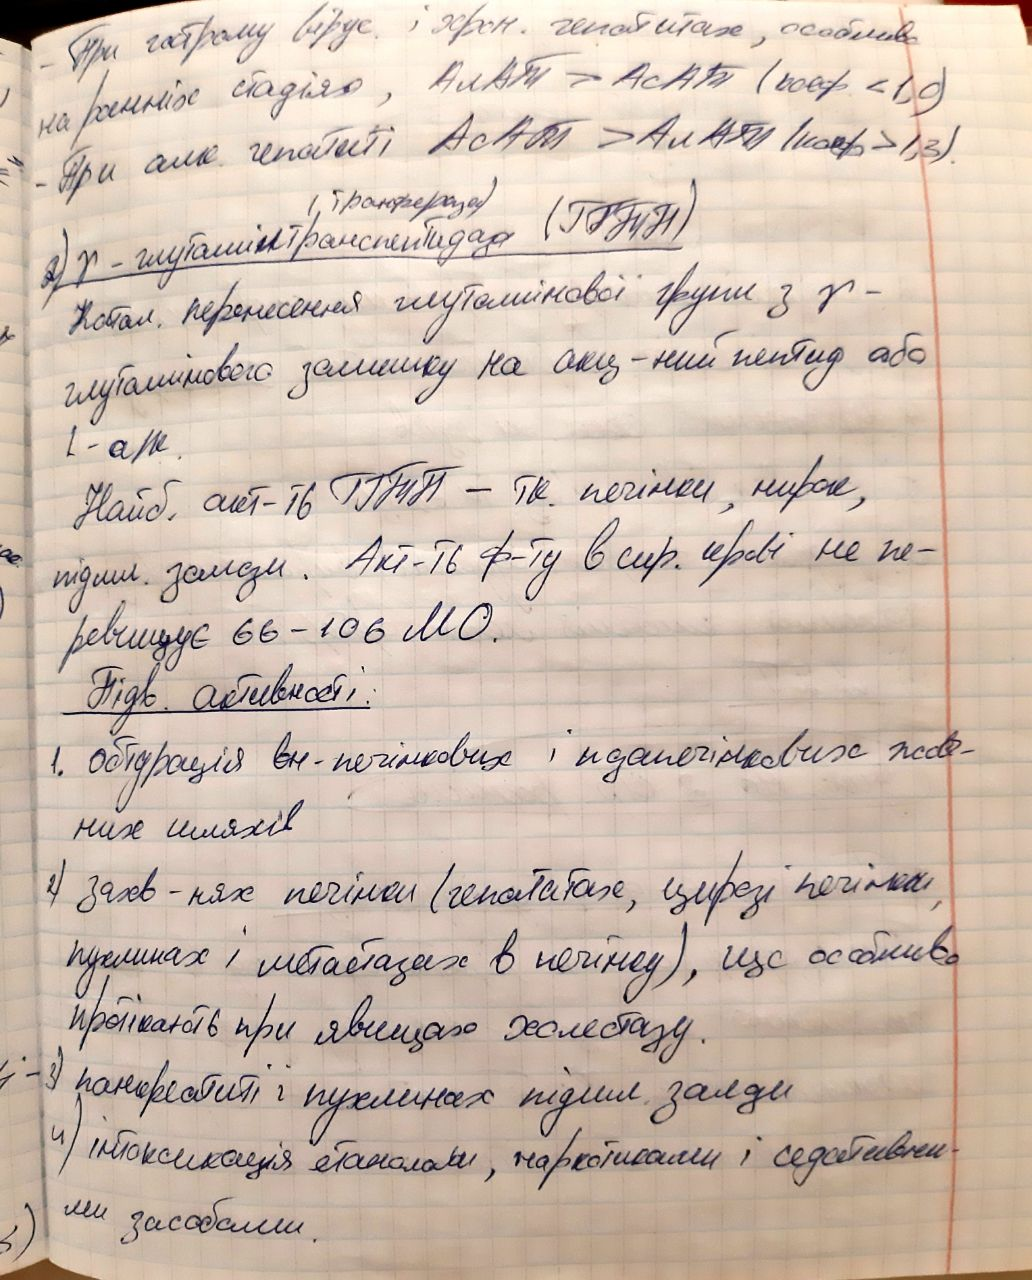 - При гострому вірус. і хрон. гепатитах, особливо
на ранніх стадіях, АлАТ > АсАТ (коеф < 1,0)
- При алк. гепатиті АсАТ > АлАТ (коеф > 1,3).
(трансфераза)
2) γ - глутамінтранспептидаза (ГГТП)
Катал. перенесення глутамінової групи з γ -
глутамінового залишку на акц-ний пептид або
L - а/к.
Найб. акт-ть ГГТП - тк. печінки, нирок,
підшл. залози. Акт-ть ф-ту в сир. крові не пе-
ревищує 66 - 106 МО.
Підв. активності:
1. обтурація вн-печінкових і підпечінкових жовч-
них шляхів
2) захв - нях печінки (гепатитах, цирозі печінки,
пухлинах і метастазах в печінку), що особливо
протікають при явищах холестазу.
3) панкреатиті і пухлинах підшл. залози
4) інтоксикація етанолом, наркотиками і седативни-
ми засобами.